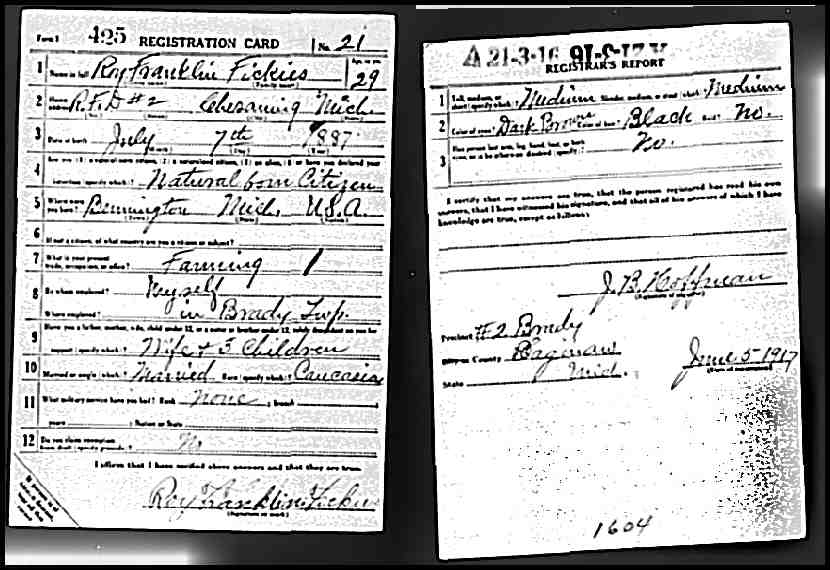 Form 1 425 REGISTRATION CARD No. 21
1 Name in full Roy Franklin Fickies Age, in yrs. 29
2 Home address R.F.D #2 Chesaning Mich
3 Date of birth July 7th 1887
4 Are you (1) a natural born citizen, (2) a naturalized citizen, (3) an alien, (4) or have you declared your
intention (specify which)? Natural born Citizen
5 Where were you born? Bennington Mich. U.S.A.
6 If not a citizen, of what country are you a citizen or subject?
7 What is your present trade, occupation, or office? Farming 1
8 By whom employed? Myself
Where employed? in Brady Twp.
9 Have you a father, mother, wife, child under 12, or a sister or brother under 12, solely dependent on you for
support (specify which)? Wife + 3 Children
10 Married or single (which)? Married Race (specify which)? Caucasian
11 What military service have you had? Rank none ; branch
years ; Nation or State
12 Do you claim exemption from draft (specify grounds)? No
I affirm that I have verified above answers and that they are true.
Roy Franklin Fickies
(Signature or mark)
21-3-16 A
REGISTRAR'S REPORT
1 Tall, medium, or short (specify which)? Medium Slender, medium, or stout (which)? Medium
2 Color of eyes? Dark Brown Color of hair? Black Bald? No.
3 Has person lost arm, leg, hand, foot, or both eyes, or is he otherwise disabled (specify)? No.
I certify that my answers are true, that the person registered has read his own
answers, that I have witnessed his signature, and that all of his answers of which I have
knowledge are true, except as follows:
J. B. Hoffman
(Signature of registrar)
Precinct #2 Brady
City or County Saginaw
State Mich. June 5-1917
(Date of registration)
1604